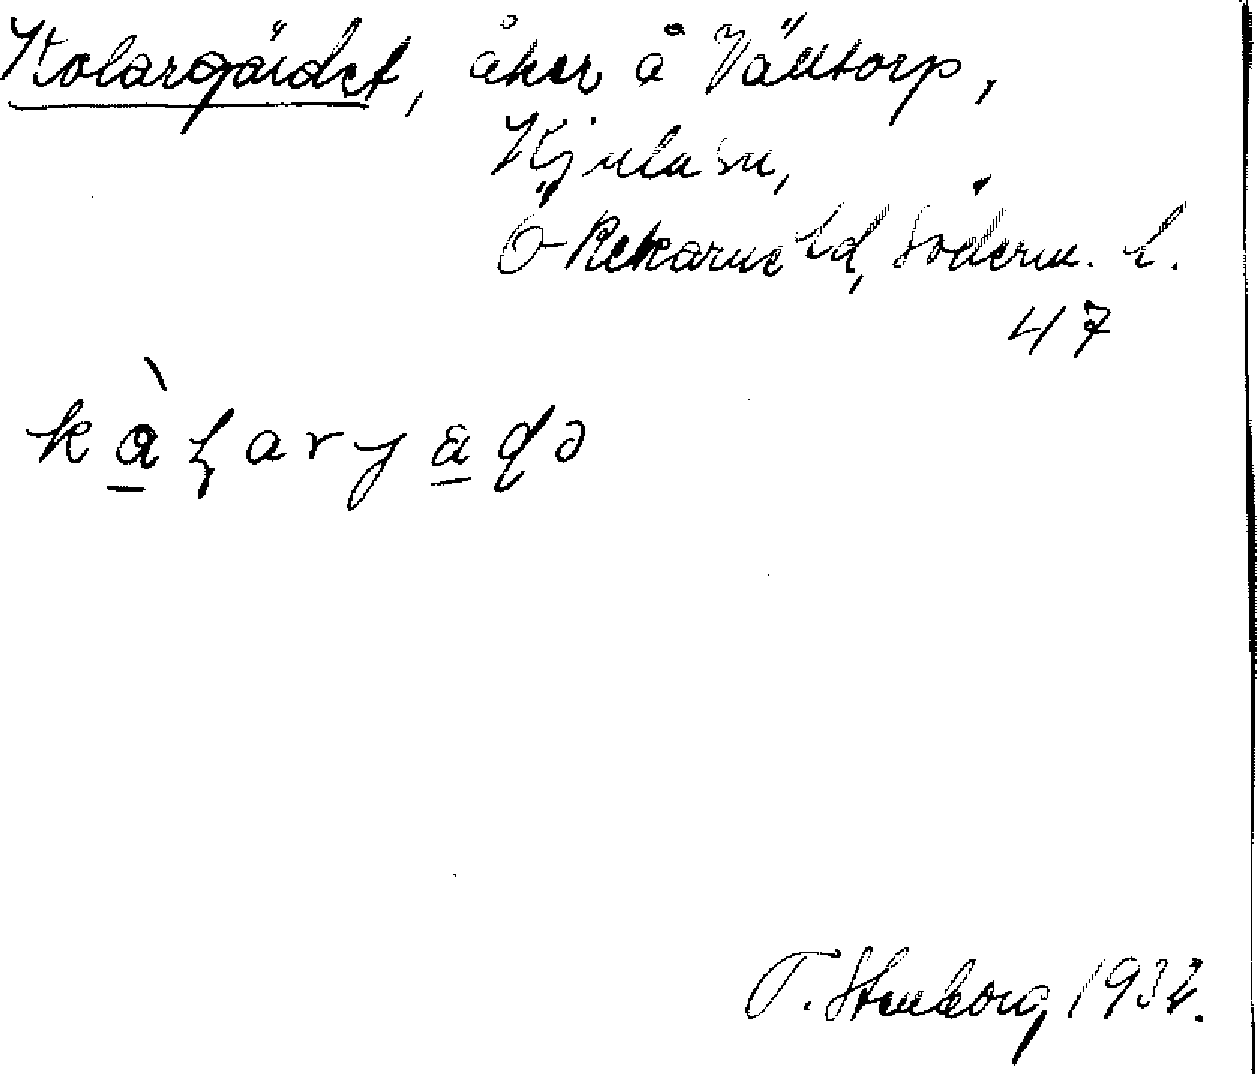 Kolargärdet, åker å Välltorp,
Kjula sn,
Ö Rekarne hd, Söderm. l.
47
T. Stenborg 1932.